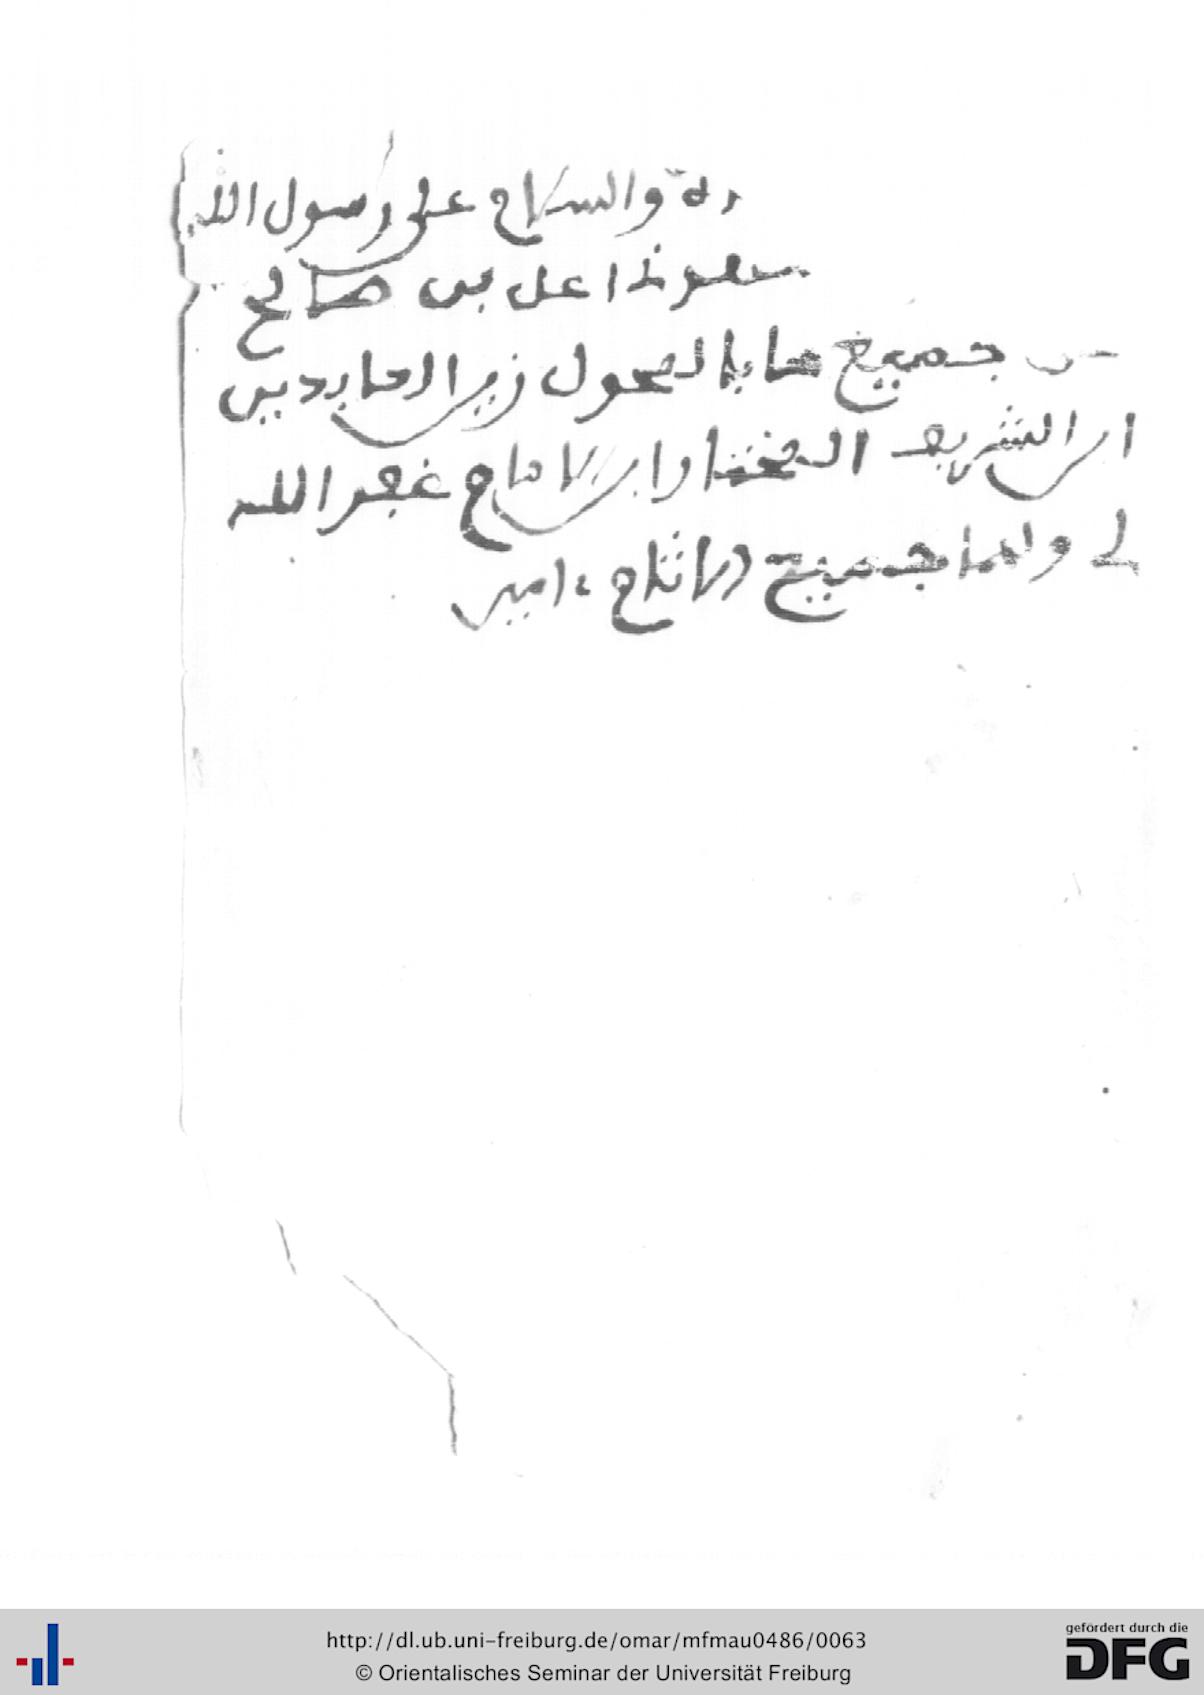 والسلام على رسول الله
اعل بن صالح
جميع الفحول زين العابدين
ابن الشريف المختار ابن الامام غفر الله
لي ولهما جميع الاثام ، امين
http://dl.ub.uni-freiburg.de/omar/mfmau0486/0063
© Orientalisches Seminar der Universität Freiburg
gefördert durch die
DFG